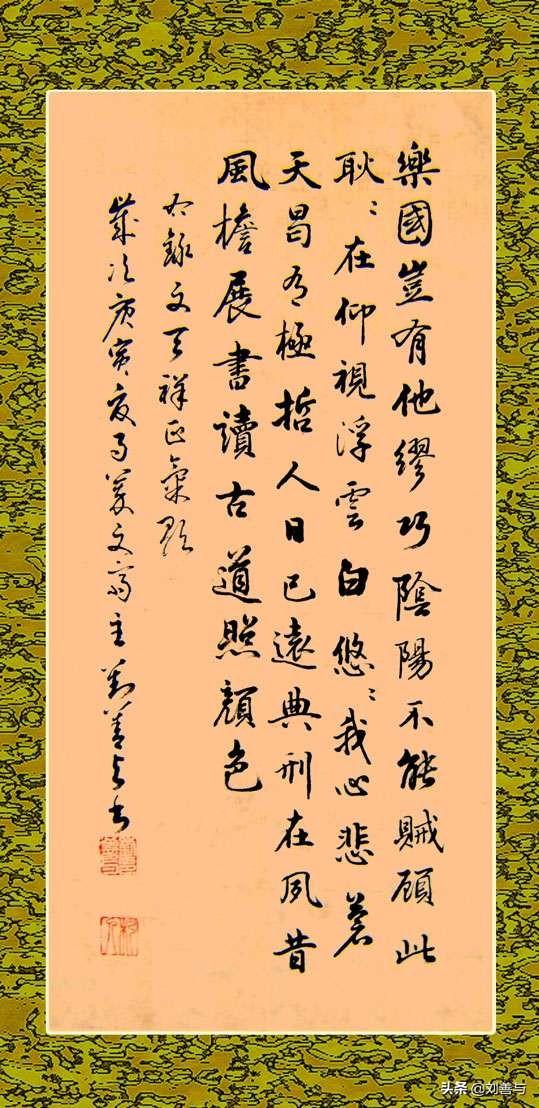 樂國豈有他繆巧陰陽不能賊顧此
耿々在仰視浮雲白悠々我心悲蒼
天曷有極哲人日已遠典刑在夙昔
風檐展書讀古道照顏色
右錄文天祥正氣歌
歲次庚寅夏月文齋主劉善与书
头条 @刘善与